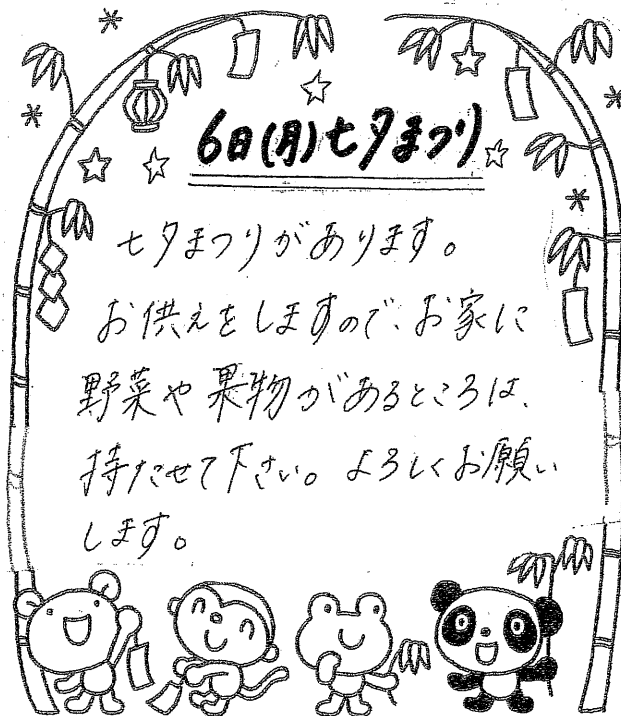 6日(月)七夕まつり
七夕まつりがあります。
お供えをしますので、お家に
野菜や果物があるところは、
持たせて下さい。よろしくお願い
します。